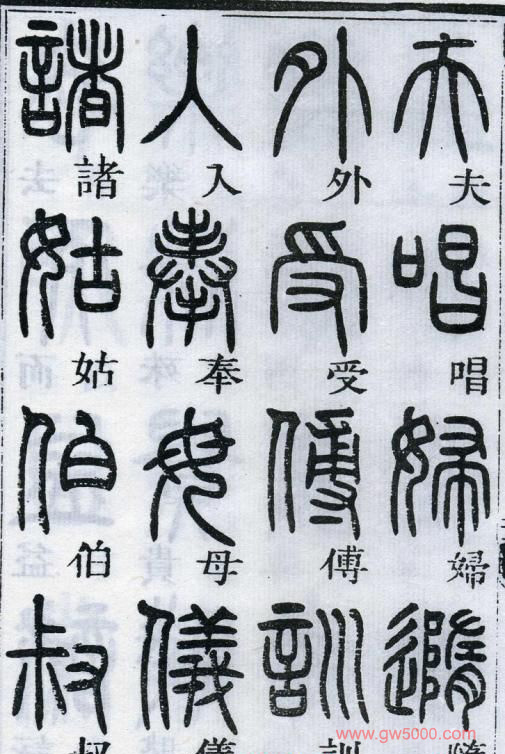 夫唱婦隨
外受傅訓
入奉母儀
諸姑伯叔
www.gw5000.com